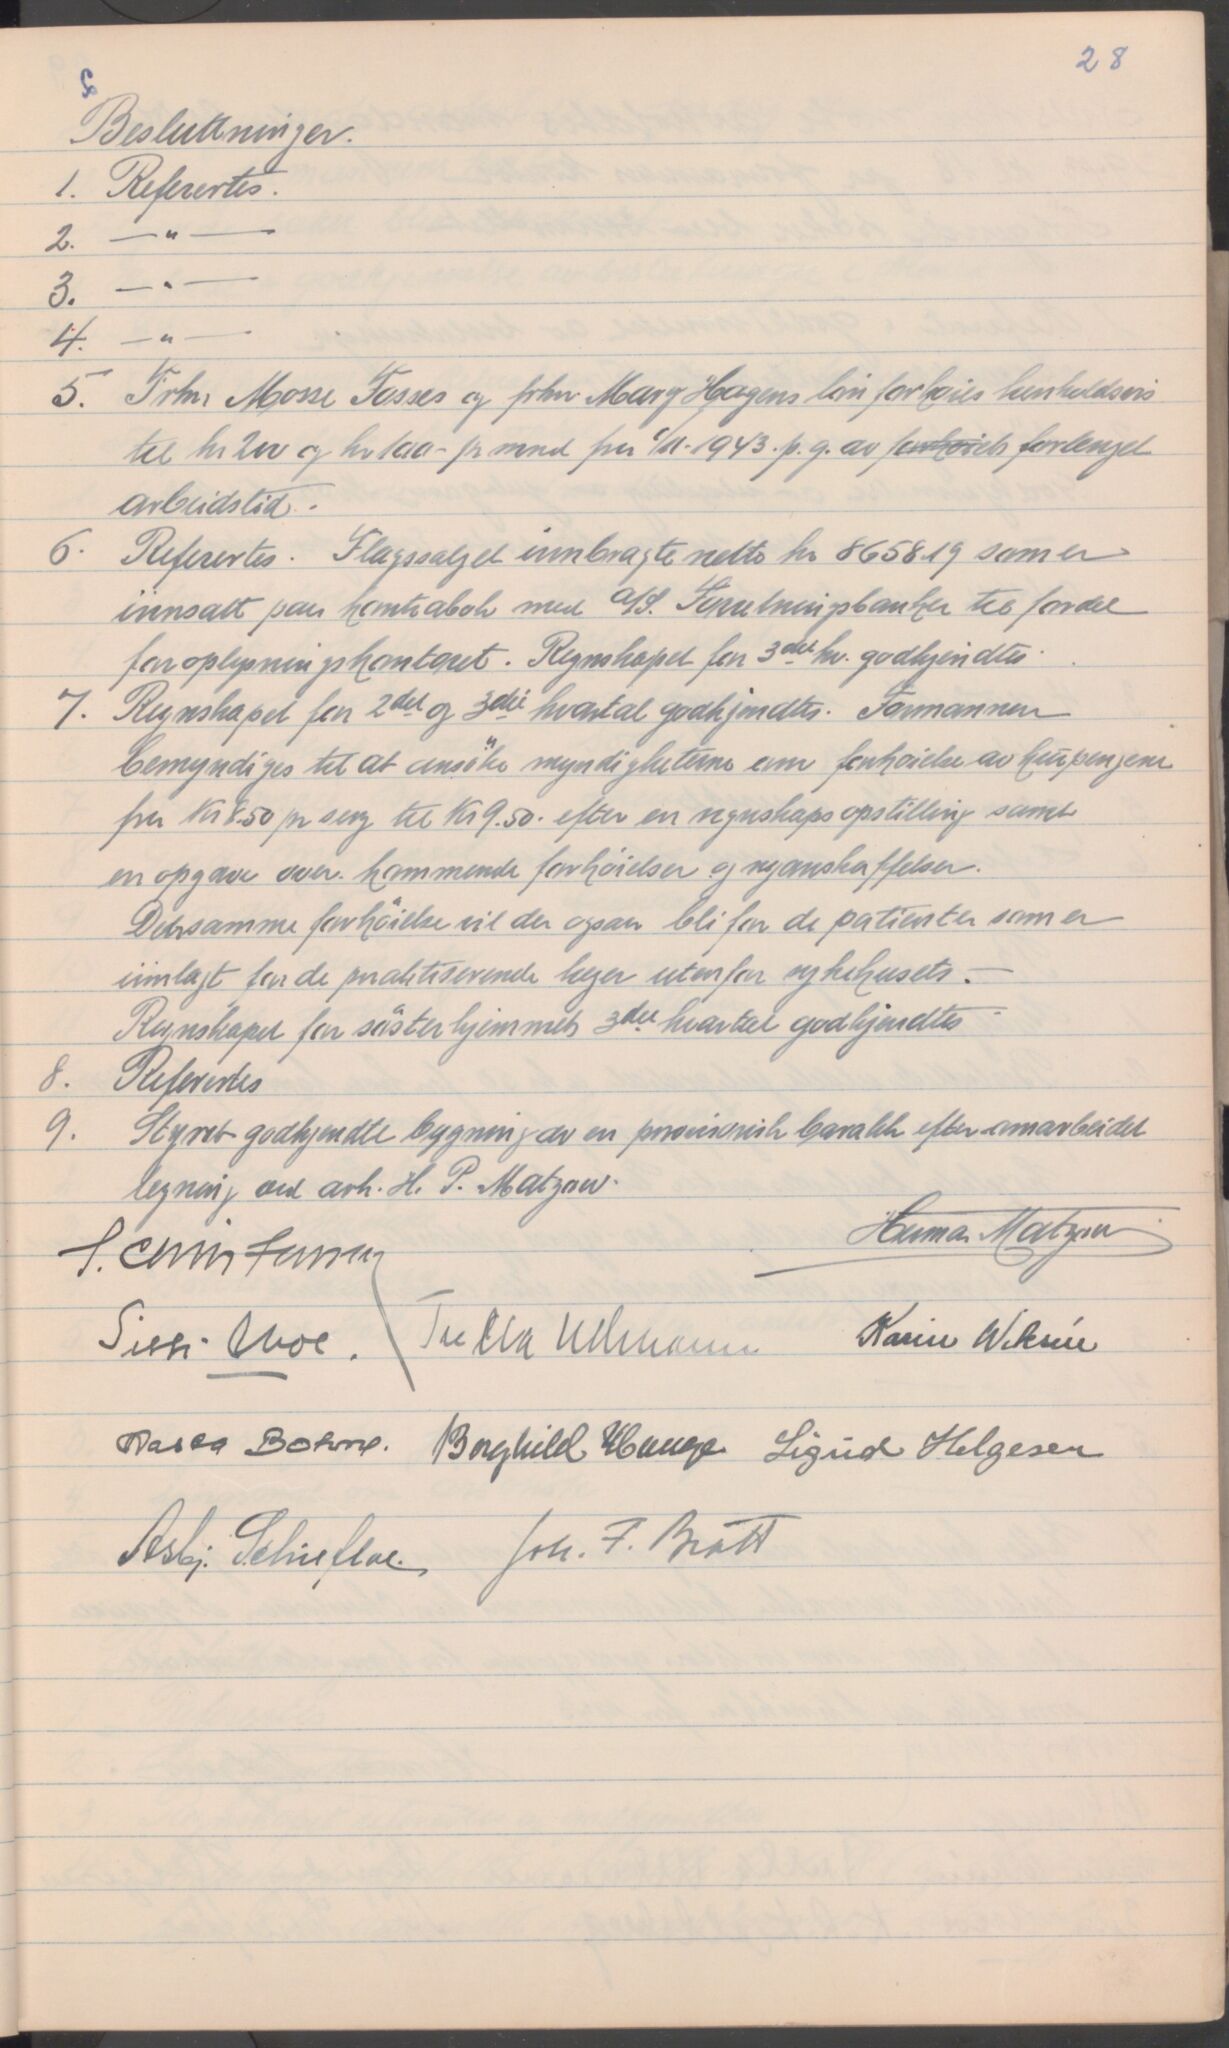 28
Besluttninger.
1. Referertes.
2. —"—
3. —"—
4. —"—
5. Frkn Mosse Fosses og frkn Mary Hagens lön forhöies henholdsvis
til kr 200 og kr 100- pr mnd fra 1/11-1943. p. g. av forhöiets forlenget
arbeidstid.
6. Referertes. Flagssalget innbragte netto kr 8658.19 som er
innsatt paa kontrabok med A/S. Forretningsbanken til fordel
for oplysningskontoret. Regnskapet for 3det kv. godkjendtes.
7. Regnskapet for 2det og 3die kvartal godkjendtes. Formannen
bemyndiges til at ansöke myndigheterne om forhöielse av kurpengene
fra Kr 8.50 pr seng til Kr 9.50. efter en regnskapsopstilling samt
en opgave over kommende forhöielser og nyanskaffelser.
Den samme forhöielse vil der ogsaa bli for de patienter som er
innlagt for de praktiserende leger utenfor sykehusets.—
Regnskapet for sösterhjemmets 3die kvartal godkjendtes
8. Referertes
9. Styret godkjendte bygning av en provisorisk barakk efter omarbeidet
tegning ved ark. H. P. Matzow.
Herman Matzow
Sissi Moe. Tulla Ullmann Karin Wiksén
Borghild Hauge Sigrid Helgesen
Asbj. Schiefloe. Joh. F. Brått